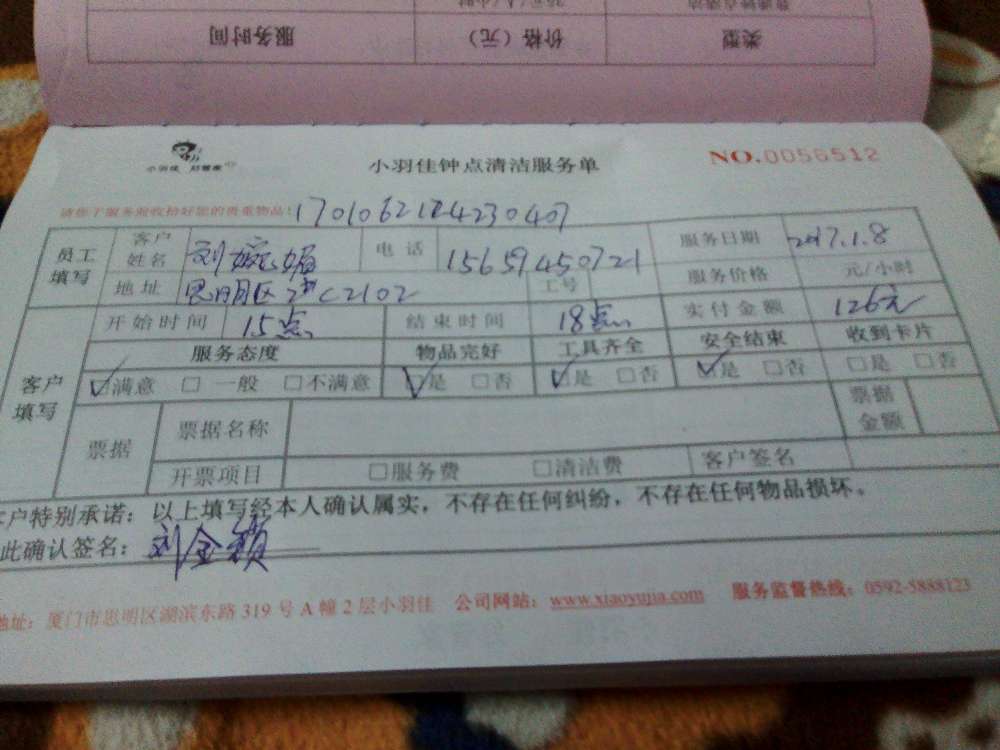 服务时间 价格（元） 类型
小羽佳 好管家
小羽佳钟点清洁服务单
NO.0056512
请您于服务前收拾好您的贵重物品！
员工填写 客户姓名 电话 15659450721 服务日期 2017.1.8
地址 思明区 C2102 工号 服务价格 元/小时
客户填写 开始时间 15点 结束时间 18点 实付金额 126元
服务态度 物品完好 工具齐全 安全结束 收到卡片
☑满意 □一般 □不满意 ☑是 □否 ☑是 □否 ☑是 □否 □是 □否
票据 票据名称 票据金额
开票项目 □服务费 □清洁费 客户签名
客户特别承诺：以上填写经本人确认属实，不存在任何纠纷，不存在任何物品损坏。
此确认签名：刘金锁
地址：厦门市思明区湖滨东路319号A幢2层小羽佳 公司网站：www.xiaoyujia.com 服务监督热线：0592-5888123